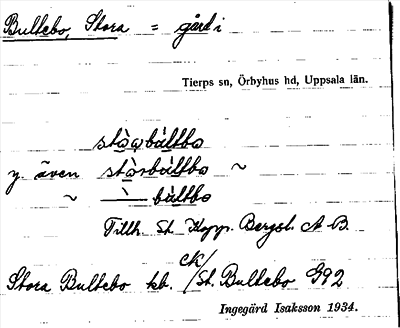 Bultebo, Stora = gård i
Tierps sn, Örbyhus hd, Uppsala län.
stòrbùltbo
y. även stòrsbùltbo ~
~ — bùltbo
Tillh. St. Kopp. Bergsl. A.B.
ck/
Stora Bultebo kb. /St. Bultebo G92
Ingegärd Isaksson 1934.